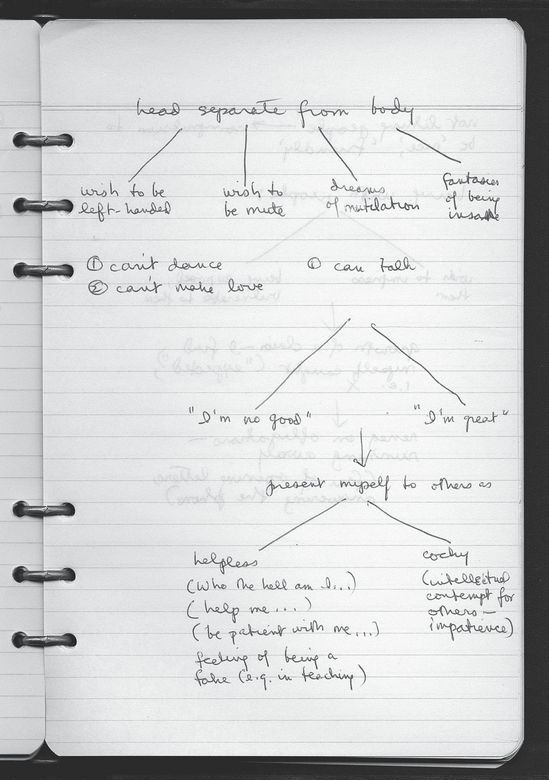 head separate from body
wish to be
left-handed
wish to
be mute
dreams
of mutilation
fantasies
of being
insane
① can't dance
② can't make love
① can talk
"I'm no good"
"I'm great"
present myself to others as
helpless
(Who the hell am I...)
(help me ...)
(be patient with me...)
feeling of being a
fake (e.g. in teaching)
cocky
(intellectual
contempt for
others —
impatience)